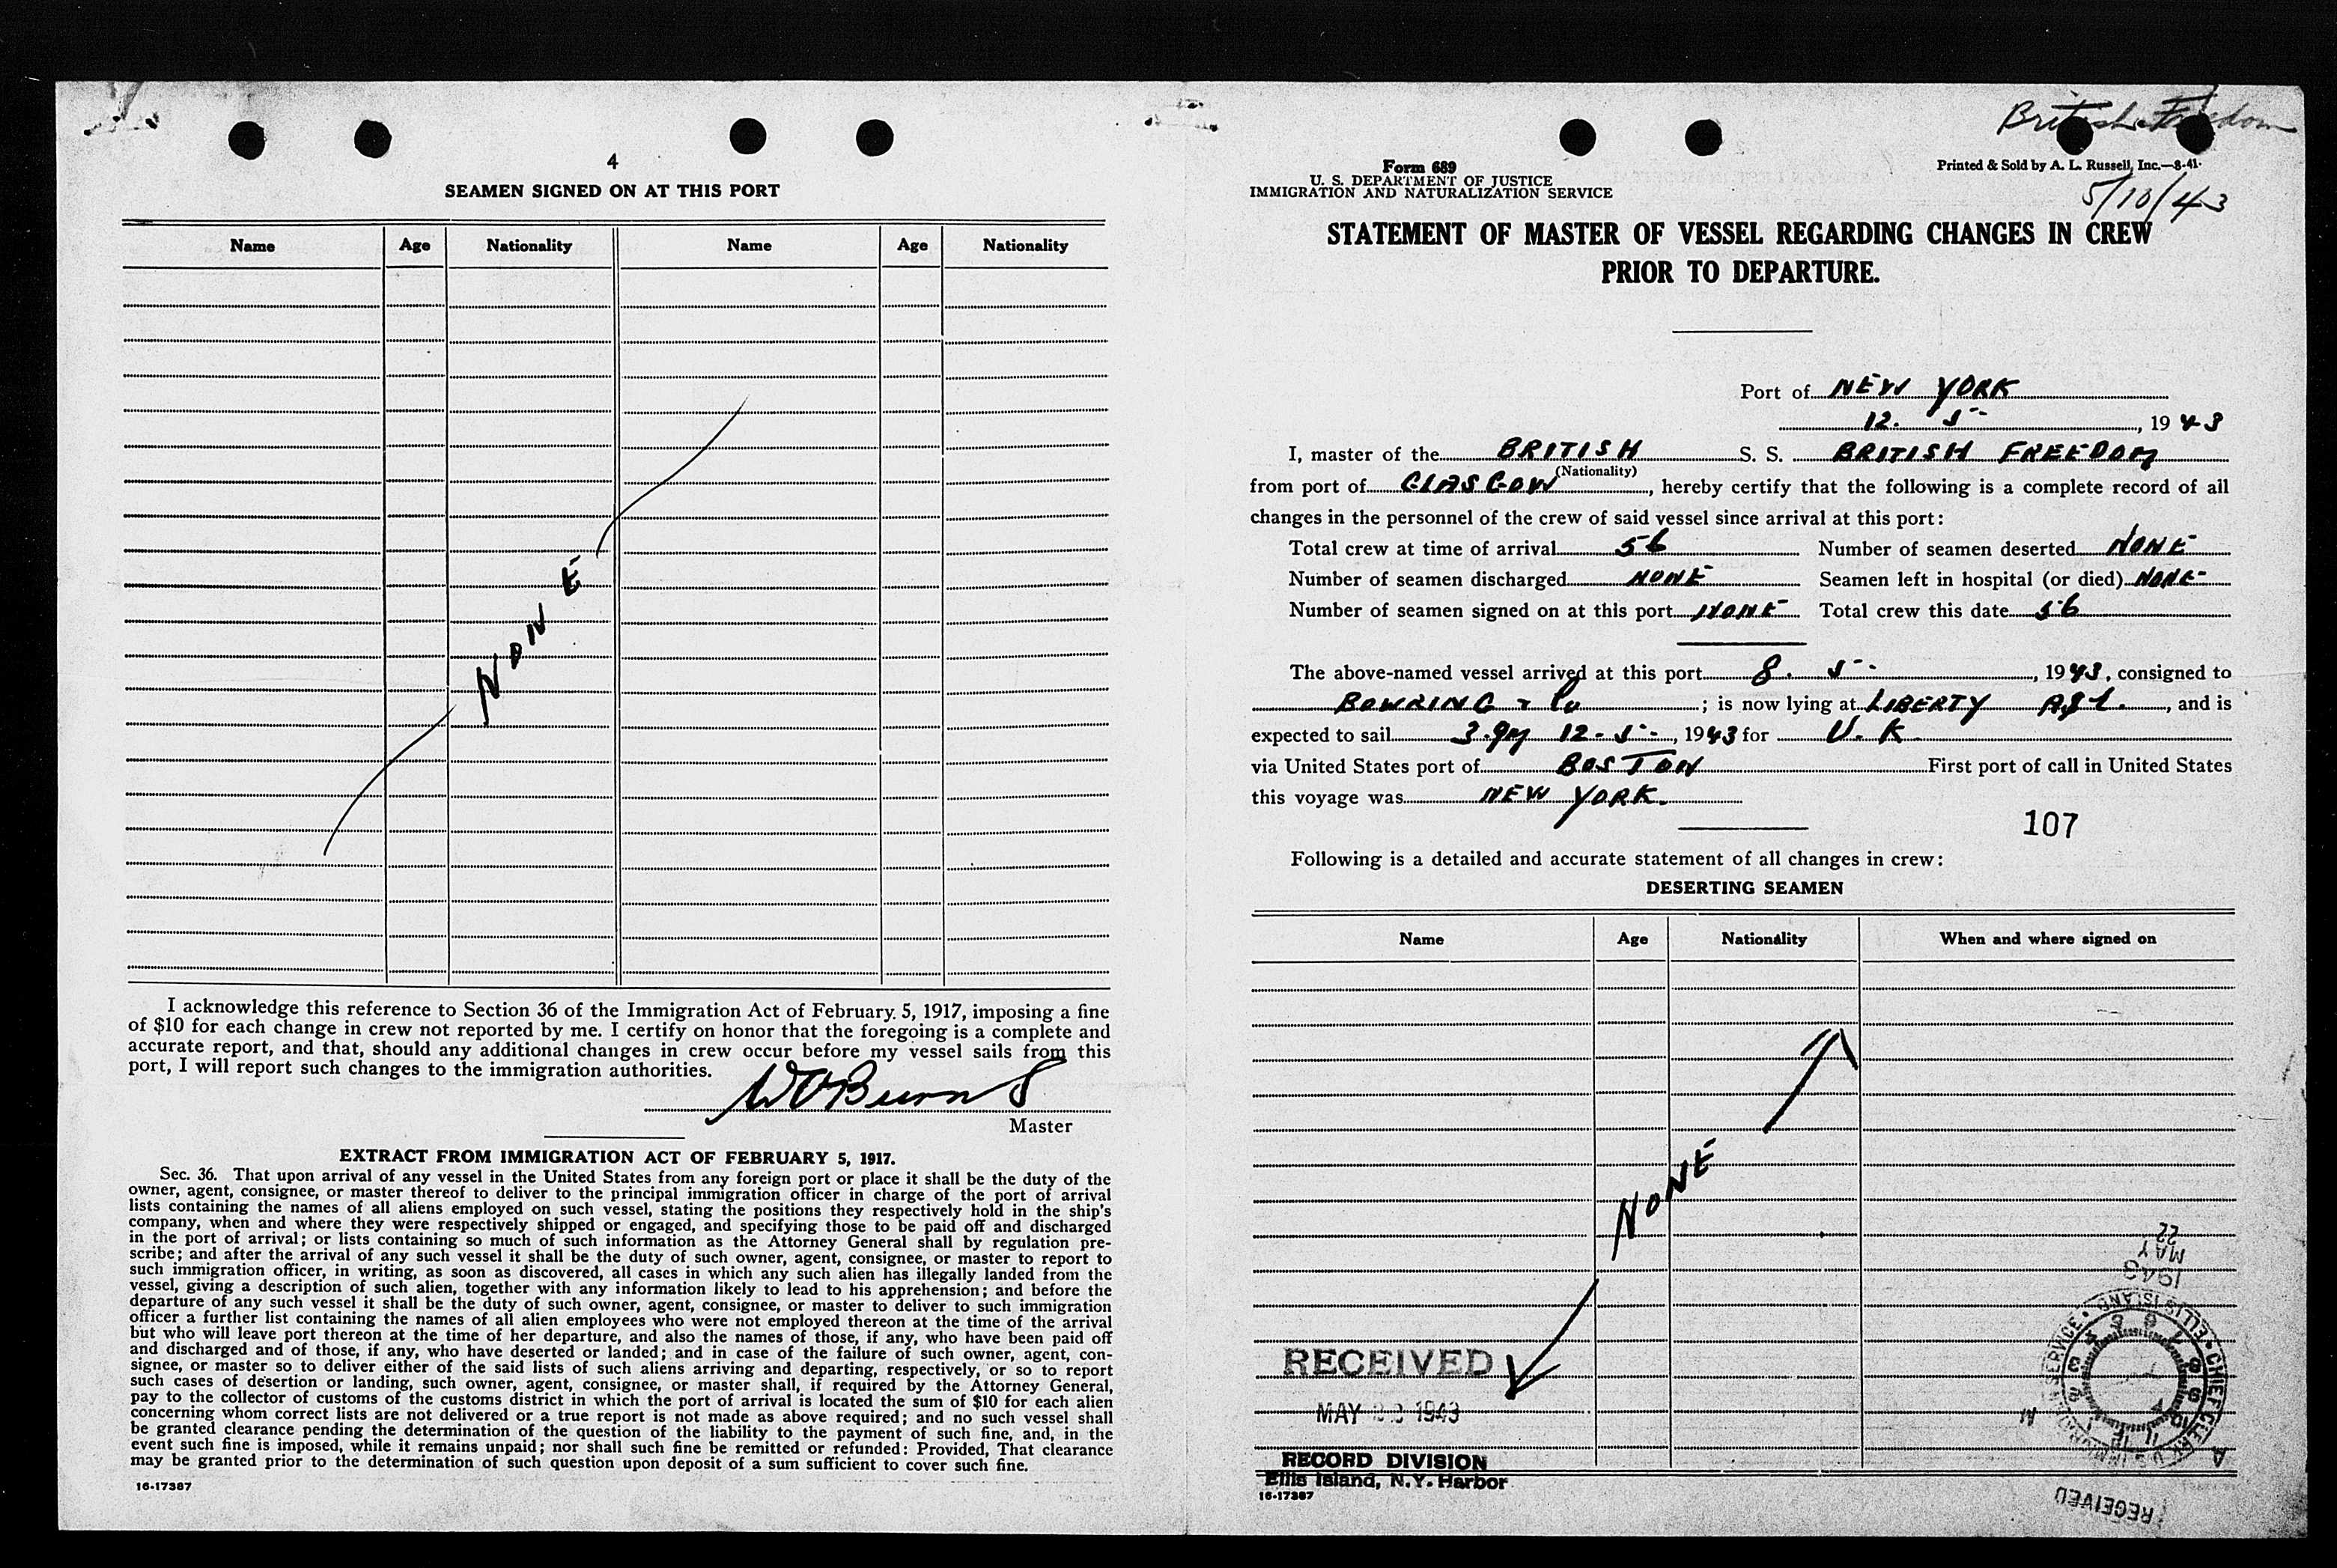 4
SEAMEN SIGNED ON AT THIS PORT
Name Age Nationality Name Age Nationality
NONE
I acknowledge this reference to Section 36 of the Immigration Act of February 5, 1917, imposing a fine
of $10 for each change in crew not reported by me. I certify on honor that the foregoing is a complete and
accurate report, and that, should any additional changes in crew occur before my vessel sails from this
port, I will report such changes to the immigration authorities.
Master
EXTRACT FROM IMMIGRATION ACT OF FEBRUARY 5, 1917.
Sec. 36. That upon arrival of any vessel in the United States from any foreign port or place it shall be the duty of the
owner, agent, consignee, or master thereof to deliver to the principal immigration officer in charge of the port of arrival
lists containing the names of all aliens employed on such vessel, stating the positions they respectively hold in the ship's
company, when and where they were respectively shipped or engaged, and specifying those to be paid off and discharged
in the port of arrival; or lists containing so much of such information as the Attorney General shall by regulation pre-
scribe; and after the arrival of any such vessel it shall be the duty of such owner, agent, consignee, or master to report to
such immigration officer, in writing, as soon as discovered, all cases in which any such alien has illegally landed from the
vessel, giving a description of such alien, together with any information likely to lead to his apprehension; and before the
departure of any such vessel it shall be the duty of such owner, agent, consignee, or master to deliver to such immigration
officer a further list containing the names of all alien employees who were not employed thereon at the time of the arrival
but who will leave port thereon at the time of her departure, and also the names of those, if any, who have been paid off
and discharged and of those, if any, who have deserted or landed; and in case of the failure of such owner, agent, con-
signee, or master so to deliver either of the said lists of such aliens arriving and departing, respectively, or so to report
such cases of desertion or landing, such owner, agent, consignee, or master shall, if required by the Attorney General,
pay to the collector of customs of the customs district in which the port of arrival is located the sum of $10 for each alien
concerning whom correct lists are not delivered or a true report is not made as above required; and no such vessel shall
be granted clearance pending the determination of the question of the liability to the payment of such fine, and, in the
event such fine is imposed, while it remains unpaid; nor shall such fine be remitted or refunded: Provided, That clearance
may be granted prior to the determination of such question upon deposit of a sum sufficient to cover such fine.
16-17387
British Freedom
Form 689
U. S. DEPARTMENT OF JUSTICE
IMMIGRATION AND NATURALIZATION SERVICE
Printed & Sold by A. L. Russell, Inc.—8-41
5/10/43
STATEMENT OF MASTER OF VESSEL REGARDING CHANGES IN CREW
PRIOR TO DEPARTURE.
Port of NEW YORK
12. 5 - , 1943
I, master of the BRITISH S. S. BRITISH FREEDOM
(Nationality)
from port of GLASGOW, hereby certify that the following is a complete record of all
changes in the personnel of the crew of said vessel since arrival at this port:
Total crew at time of arrival 56 Number of seamen deserted NONE
Number of seamen discharged NONE Seamen left in hospital (or died) NONE
Number of seamen signed on at this port NONE Total crew this date 56
The above-named vessel arrived at this port 8. 5 - , 1943, consigned to
BOWRING & Co ; is now lying at LIBERTY , and is
expected to sail 3.PM 12-5-, 1943 for U. K.
via United States port of BOSTON First port of call in United States
this voyage was NEW YORK.
107
Following is a detailed and accurate statement of all changes in crew:
DESERTING SEAMEN
Name Age Nationality When and where signed on
NONE
1943 MAY 22
RECEIVED
MAY 1943
RECORD DIVISION
Ellis Island, N.Y. Harbor
16-17387
RECEIVED